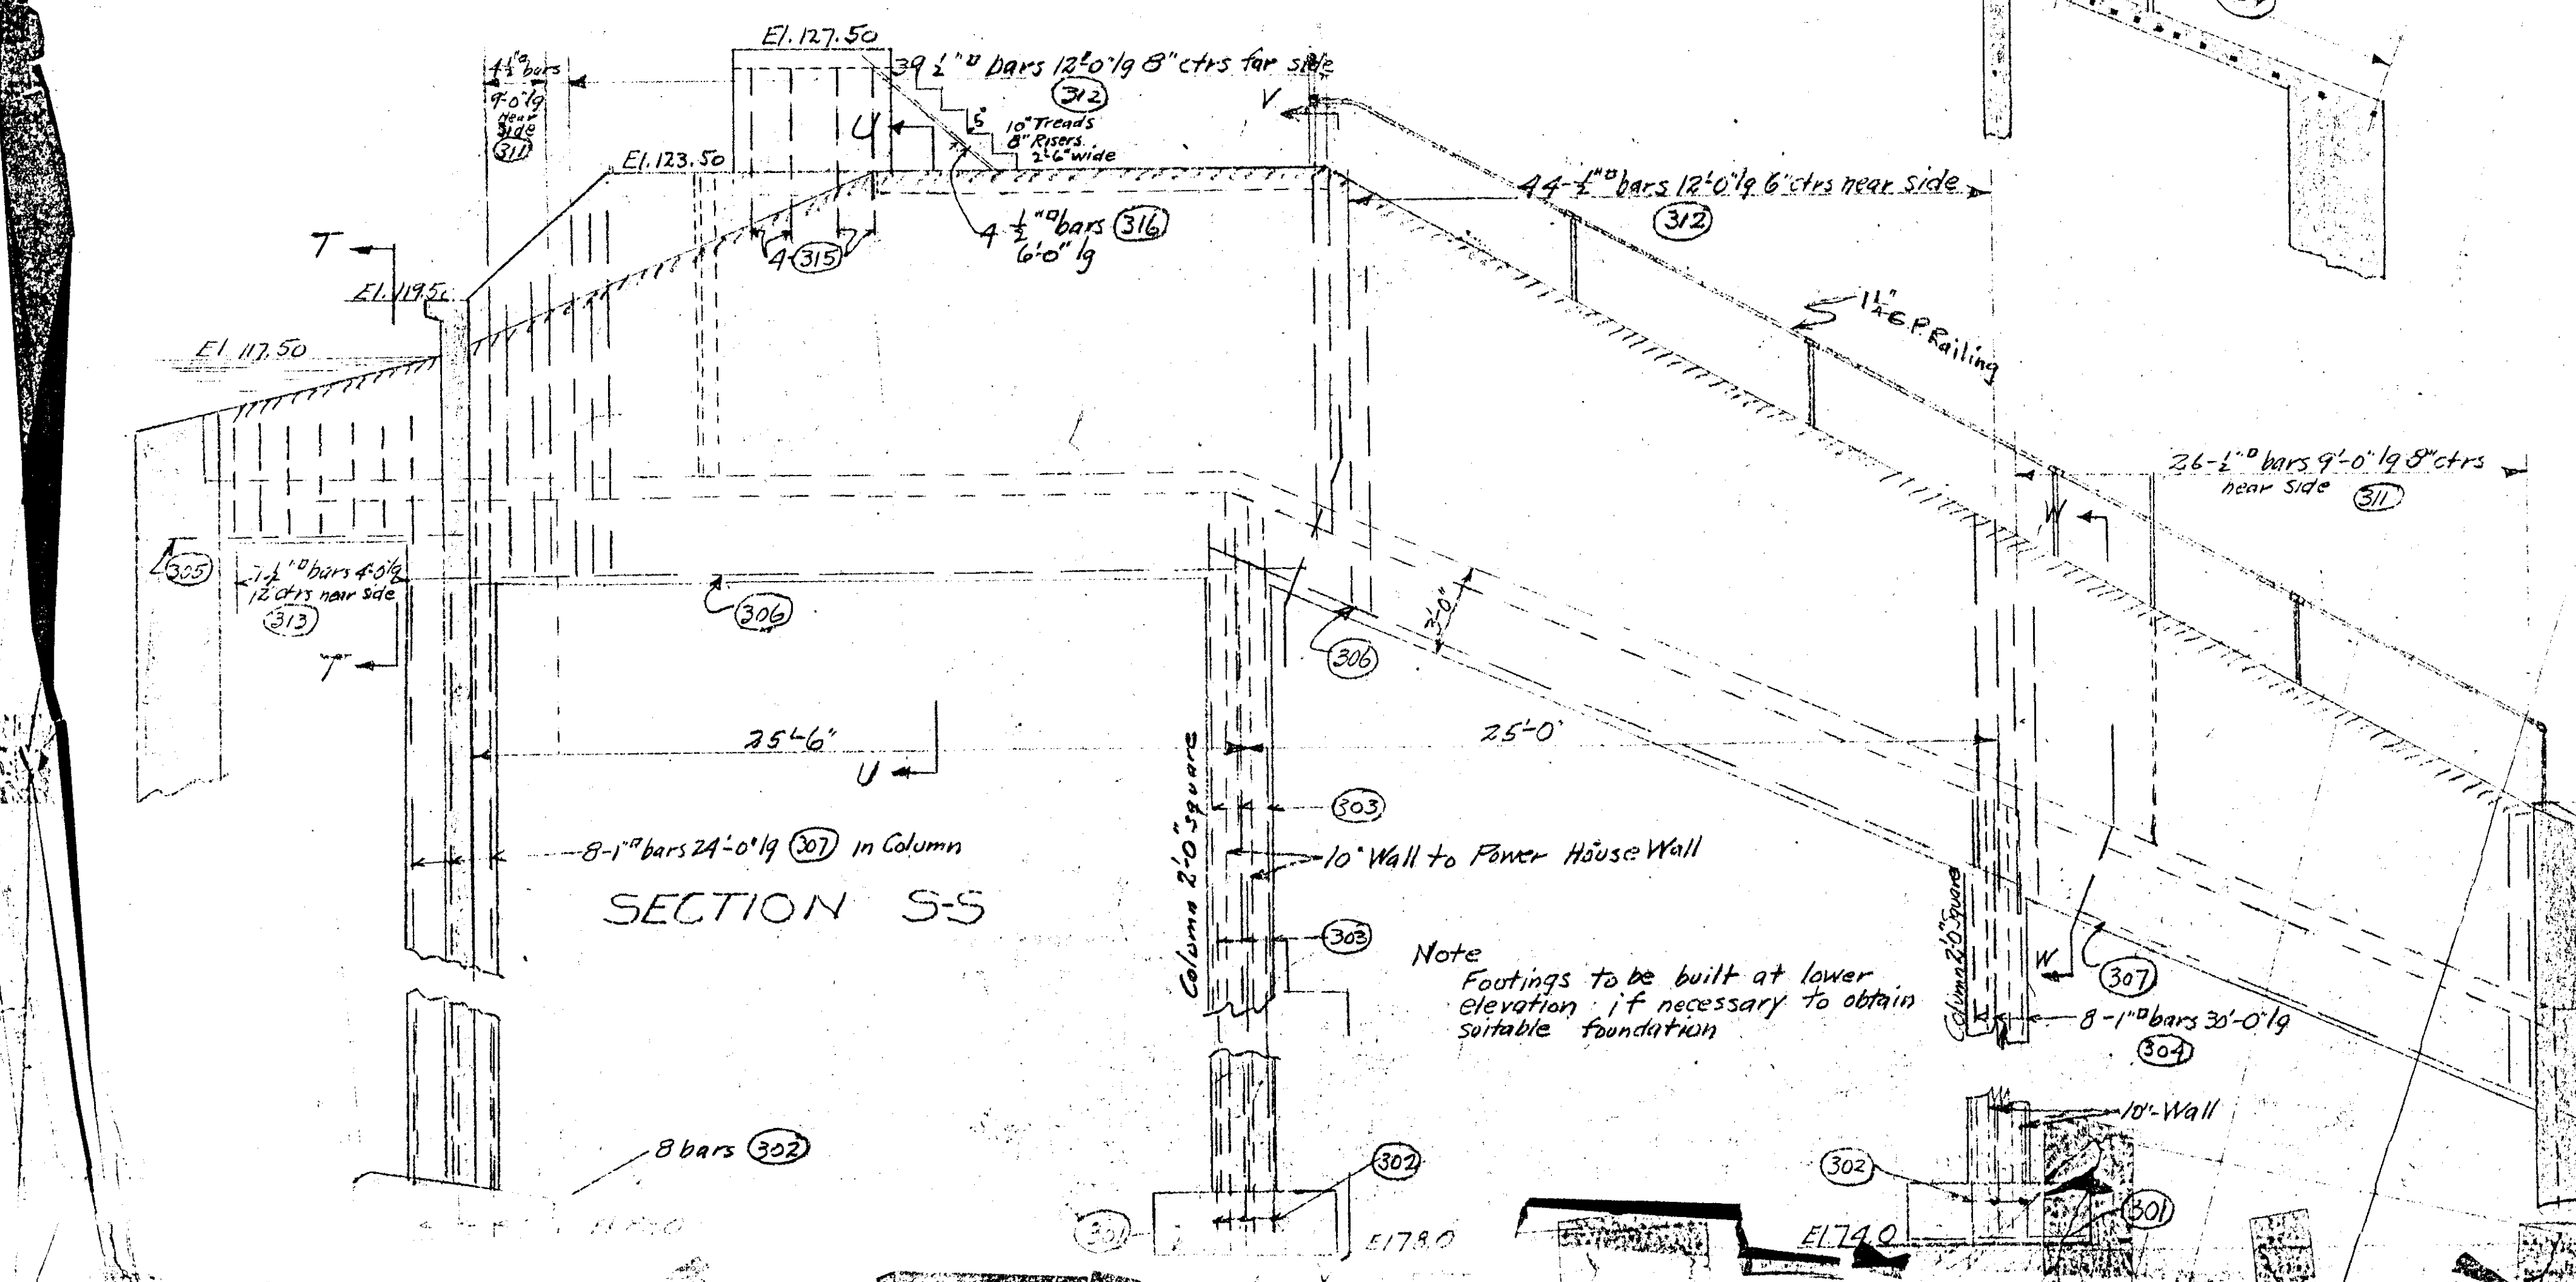 El. 127.50
4 ½"▫ bars
9'-0" lg
Near
Side
311
39 ½"▫ bars 12'-0" lg 8" ctrs far side
312
10" Treads
8" Risers
2'-6" wide
U
V
El. 123.50
44-½"▫ bars 12'-0" lg 6" ctrs near side
312
4 ½"▫ bars 316
6'-0" lg
4-315
T
El. 119.5
El. 117.50
1¼" G.P. Railing
26-½"▫ bars 9'-0" lg 8" ctrs
near side 311
W
305
7-½"▫ bars 4'-0" lg
12 ctrs near side
313
306
306
3'-0"
T
25'-6"
25'-0"
U
Column 2'-0" square
303
8-1"▫ bars 24'-0" lg 307 in Column
10" Wall to Power House Wall
SECTION S-S
303
Note
Footings to be built at lower
elevation if necessary to obtain
suitable foundation
Column 2'-0" Square
W
307
8-1"▫ bars 30'-0" lg
304
10"-Wall
8 bars 302
302
302
301
301
El 78.0
El 74.0